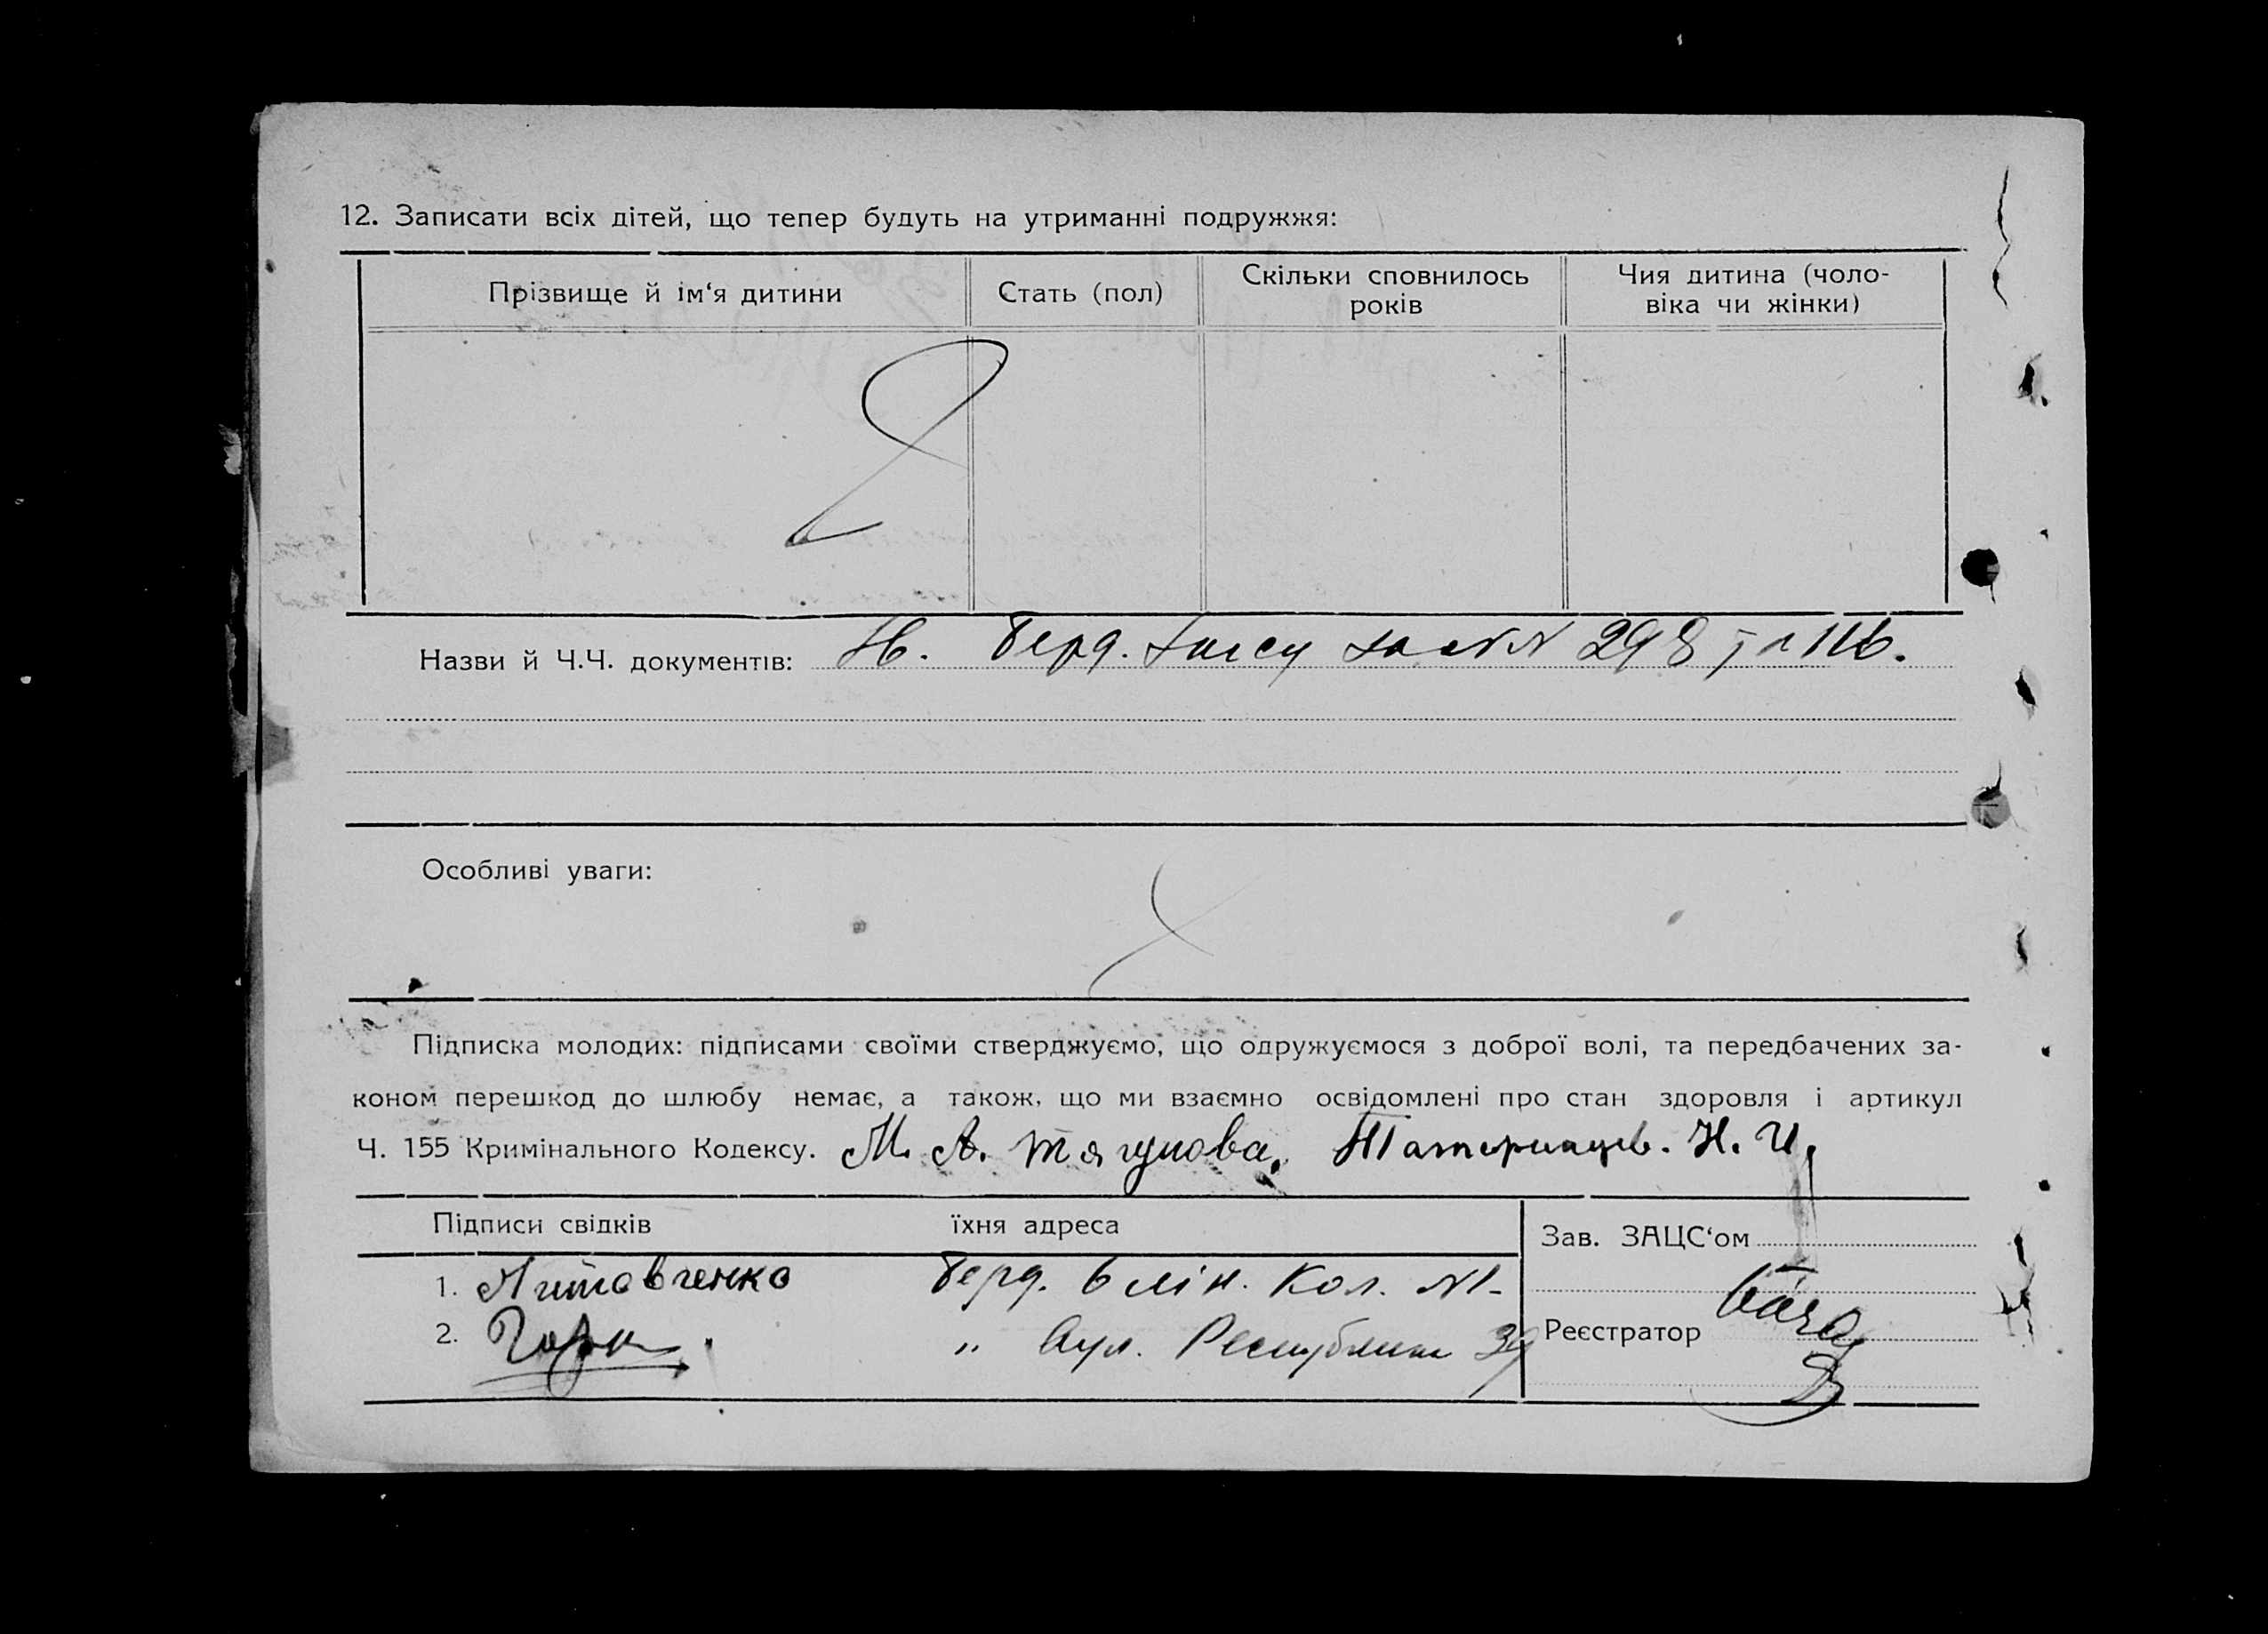 12. Записати всіх дітей, що тепер будуть на утриманні подружжя:
Прізвище й ім'я дитини
Стать (пол)
Скільки сповнилось
років
Чия дитина (чоло-
віка чи жінки)
Назви й Ч.Ч. документів: Берд. 298
Особливі уваги:
Підписка молодих: підписами своїми стверджуємо, що одружуємося з доброї волі, та передбачених за-
коном перешкод до шлюбу немає, а також, що ми взаємно освідомлені про стан здоровля і артикул
Ч. 155 Кримінального Кодексу. М. А. Тягунова. Татаринцев. Н. И.
Підписи свідків їхня адреса
Зав. ЗАЦС'ом
1. Литовченко Берд. 6 лін. Кол. N1-
2. " Вул. Республики 39
Реєстратор